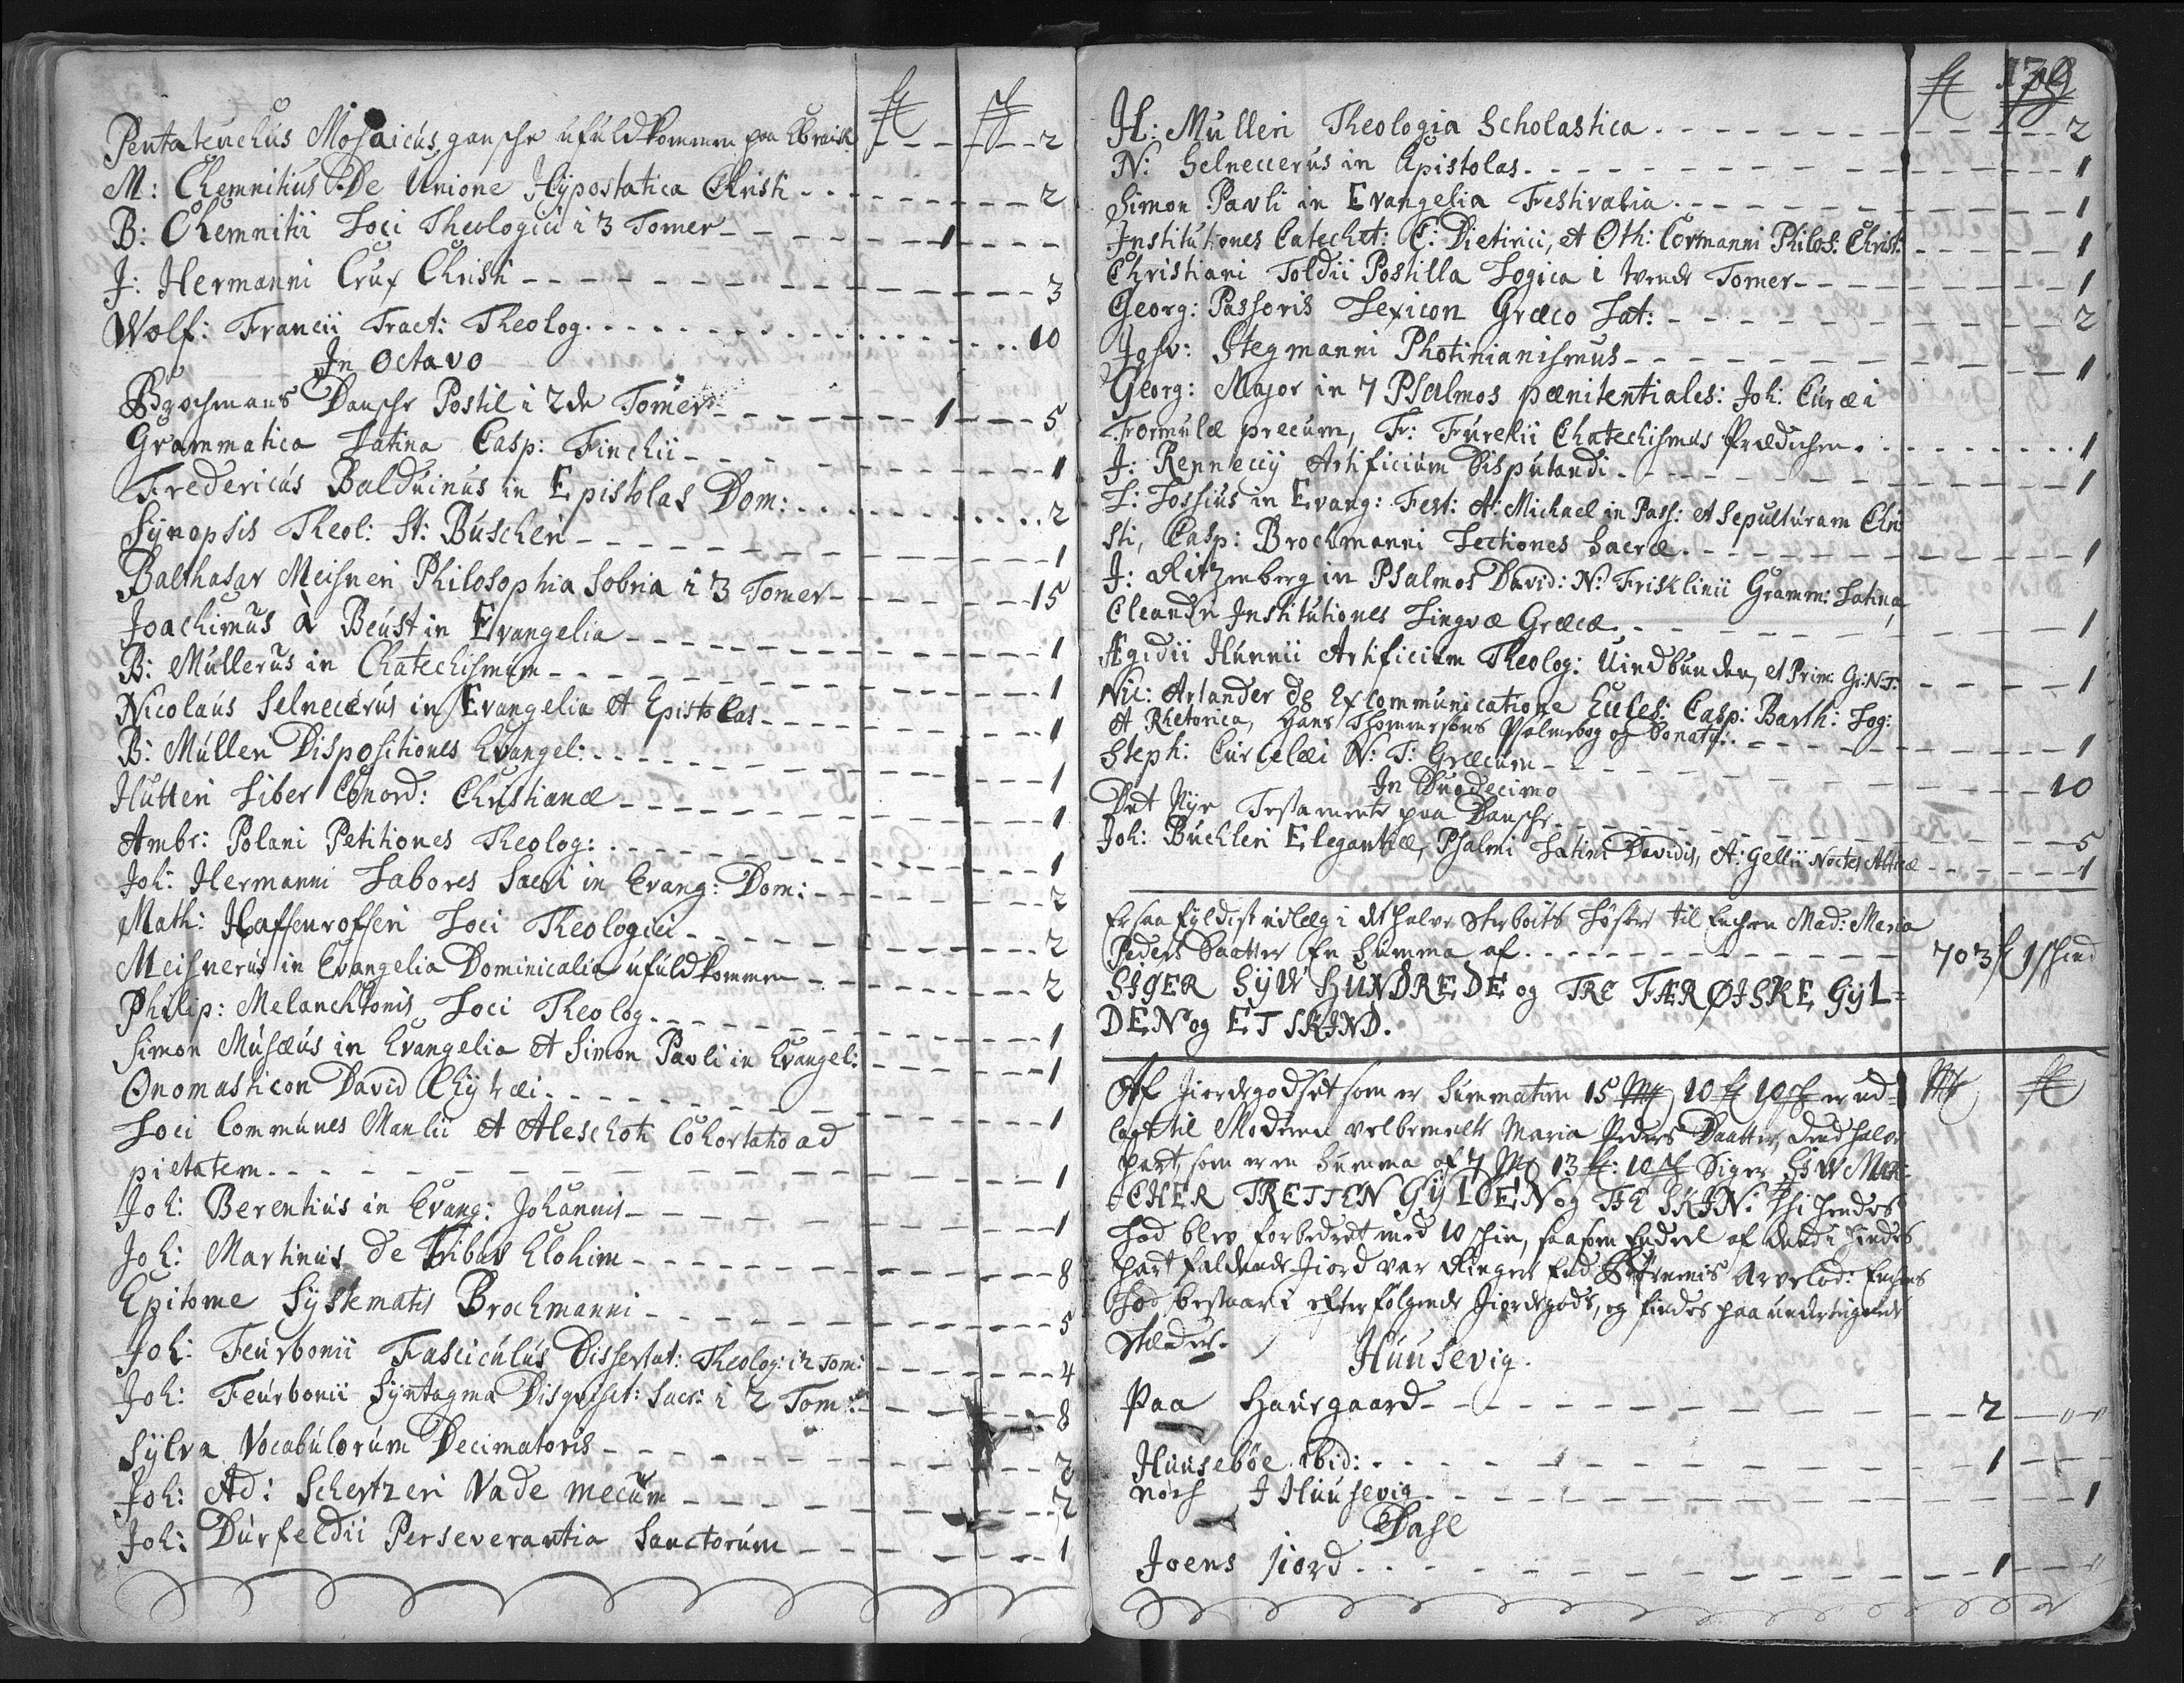 Pentateuchus Mosaicus, gansche ufuldkommen paa Ebraisk - - - - 2
M: Chemnitius De Unione Hypostatica Christi - - - - 2
B: Chemnitii Loci Theologici i 3 Tomer - - - - 1 - - - -
J: Hermanni Crux Christi - - - - 3
Wolf: Francii Tract: Theolog. - - - - 10
In Octavo
Brochmans Dansche Postil i 2de Tomer - - - - 1 - - - 5
Grammatica Latina Casp: Finchii - - - - 1
Fredericus Balduinus in Epistolas Dom: - - - - 2
Synopsis Theol: St: Buscheri - - - - 1
Balthasar Meisneri Philosophia Sobria i 3 Tomer - - - - 15
Joachimus à Beust in Evangelia - - - - 1
B: Mullerus in Chatechismum - - - - 1
Nicolaus Selneccerus in Evangelia et Epistolas - - - - 1
B: Mulleri Dispositiones Evangel: - - - - 1
Hutteri Liber Conord: Christianæ - - - - 1
Ambr: Polani Petitiones Theolog: - - - - 1
Joh: Hermanni Labores Sacri in Evang: Dom: - - - - 2
Math: Haffenrofferi Loci Theologici - - - - 2
Meisnerus in Evangelia Dominicalia ufuldkommen - - - - 2
Philip: Melanchtonis Loci Theolog. - - - - 1
Simon Musæus in Evangelia et Simon Pavli in Evangel: - - - - 1
Onomasticon David Chytræi - - - - 1
Loci Communes Manlii et Aleschoti Cohortatio ad
pietatem - - - - 1
Joh: Berentius in Evang: Johannis - - - - 1
Joh: Martinus de Tribus Elohim - - - - 8
Epitome Systematis Brochmanni - - - - 5
Joh: Feurbonii Fasciculus Dissertat: Theolog: i 2 Tom: - - - - 4
Joh: Feurbonii Syntagma Disqvisit: Sacr: i 2 Tom: - - - - 8
Sylva Vocabulorum Decimatoris - - - - 2
Joh: Ad: Schertzeri Vade mecum - - - - 2
Joh: Durfeldii Perseverantia Sanctorum - - - - 1
H: Mulleri Theologia Scholastica - - - - 2
N: Selneccerus in Epistolas - - - - 1
Simon Pavli in Evangelia Festivalia - - - - 1
Institutiones Catechet: C: Dietirici, et Oth: Cormanni Philos: Christ: - - - - 1
Christiani Toldii Postilla Logica i tvende Tomer - - - - 1
Georg: Passoris Lexicon Græco Lat: - - - - 2
Josv: Stegmanni Photinianismus - - - - 1
Georg: Major in 7 Psalmos pænitentiales: Joh: Curæi
Formulæ precum, Fr: Furelii Chatechismus Prædichen - - - - 1
J: Rennecij Artificium Disputandi - - - - 1
L: Lossius in Evang: Fest: A: Michael in Pass: et Sepulturam Chri
sti, Casp: Brochmanni Lectiones Sacræ - - - - 1
J: Ritzenberg in Psalmos David: N: Frisklinii Gramm: Latina,
Cleandri Institutiones Lingvæ Græcæ - - - - 1
Ægidii Hunnii Artificium Theolog: Uindbunden, et Prim: Gr: N: T: - - - - 1
Nic: Arlander de Excommunicatione Eccles: Casp: Barth: Log:
et Rhetorica, Hans Thommesøns Psalmebog og Donatus: - - - - 1
Steph: Curcelæi N: T: Græcum - - - - 10
In Duodecimo
Det Nye Testamente paa Dansche - - - - 5
Joh: Buchleri Elegantiæ, Psalmi Latini Davidis, A: Gellii Noctes Atticæ - - - - 1
Er saa fyldist udlæg i det halve Sterboets Løsøre til Enchen Mad: Maria
Peders Daatter En Summa af - - - - 703 f 1 schind
SIGER SYW HUNDREDE og TRE FÆRØISKE GYL=
DEN og ET SKIND.
Af Jordegodset som er Summatim 15 10 10 er ud=
lagt til Moderen velbemelte Maria Peders Daatter, dend halve
part, som er en Summa af 7 13 10 Siger SIW MAR=
CHER TRETTEN GYLDEN og TIE SKIN: thi hendes
Lod blev forbedret med 10 schin, saasom Endeel af dend i hendes
part faldende Jiord var Ringere End Arvelod: Enchens
Lod bestaar i efterfølgende Jiordegods, og findes paa undertegnede
Stæder.
Huusevig.
Paa Hauegaard - - - - 2 - " - "
Huusebøe ibid: - - - - 1 - - -
Nørh I Huusevig - - - - 1
Dahl
Joens jiord - - - - 1 - - "